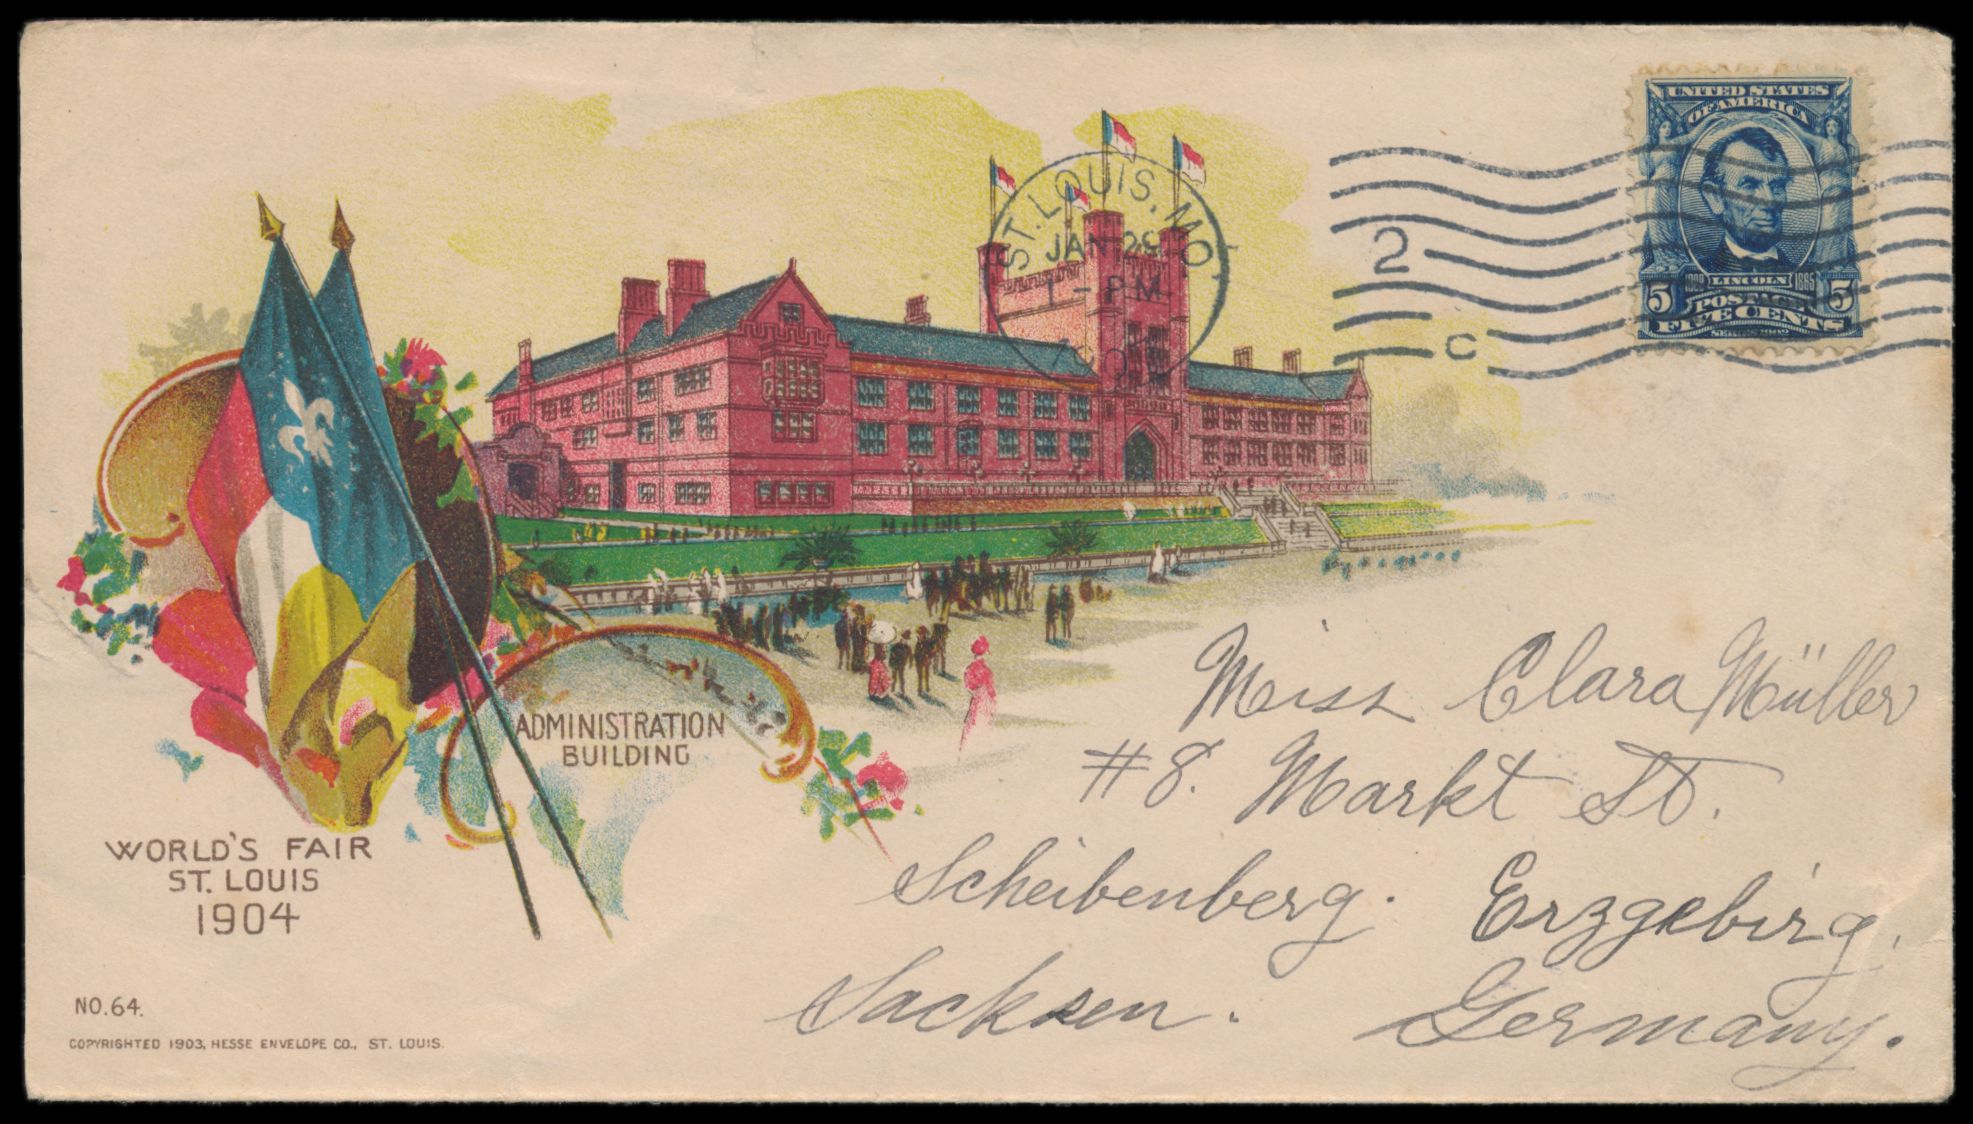 UNITED STATES
OF AMERICA
1809 LINCOLN 1865
5 POSTAGE 5
FIVE CENTS
SERIES 1902
ST. LOUIS, MO.
JAN 28
1 - PM
2
C
ADMINISTRATION
BUILDING
WORLD'S FAIR
ST. LOUIS
1904
NO. 64.
COPYRIGHTED 1903, HESSE ENVELOPE CO., ST. LOUIS.
Miss Clara Müller
#8. Markt St.
Scheibenberg. Erzgebirg.
Sachsen. Germany.